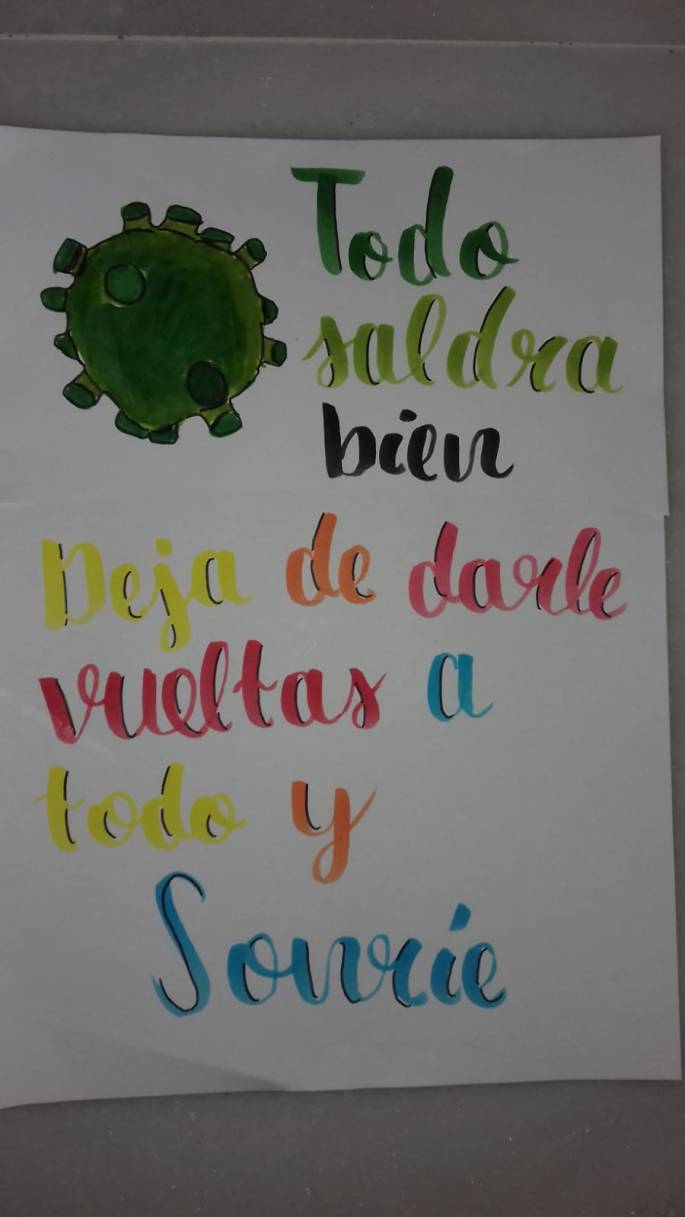 Todo
saldra
bien
Deja de darle
vueltas a
todo y
Sonríe